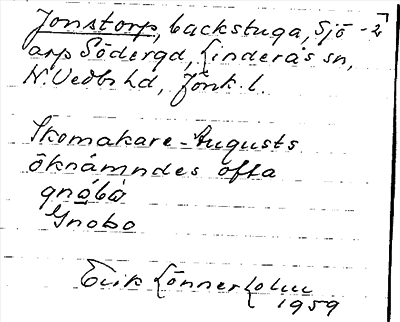 Jonstorp, backstuga, Sjö-
arp Söderga, Linderås sn,
N. Vedbo hd, Jönk. l.
Skomakare-Augusts
öknämndes ofta
gnobo
Gnobo
Erik Lönnerholm
1959